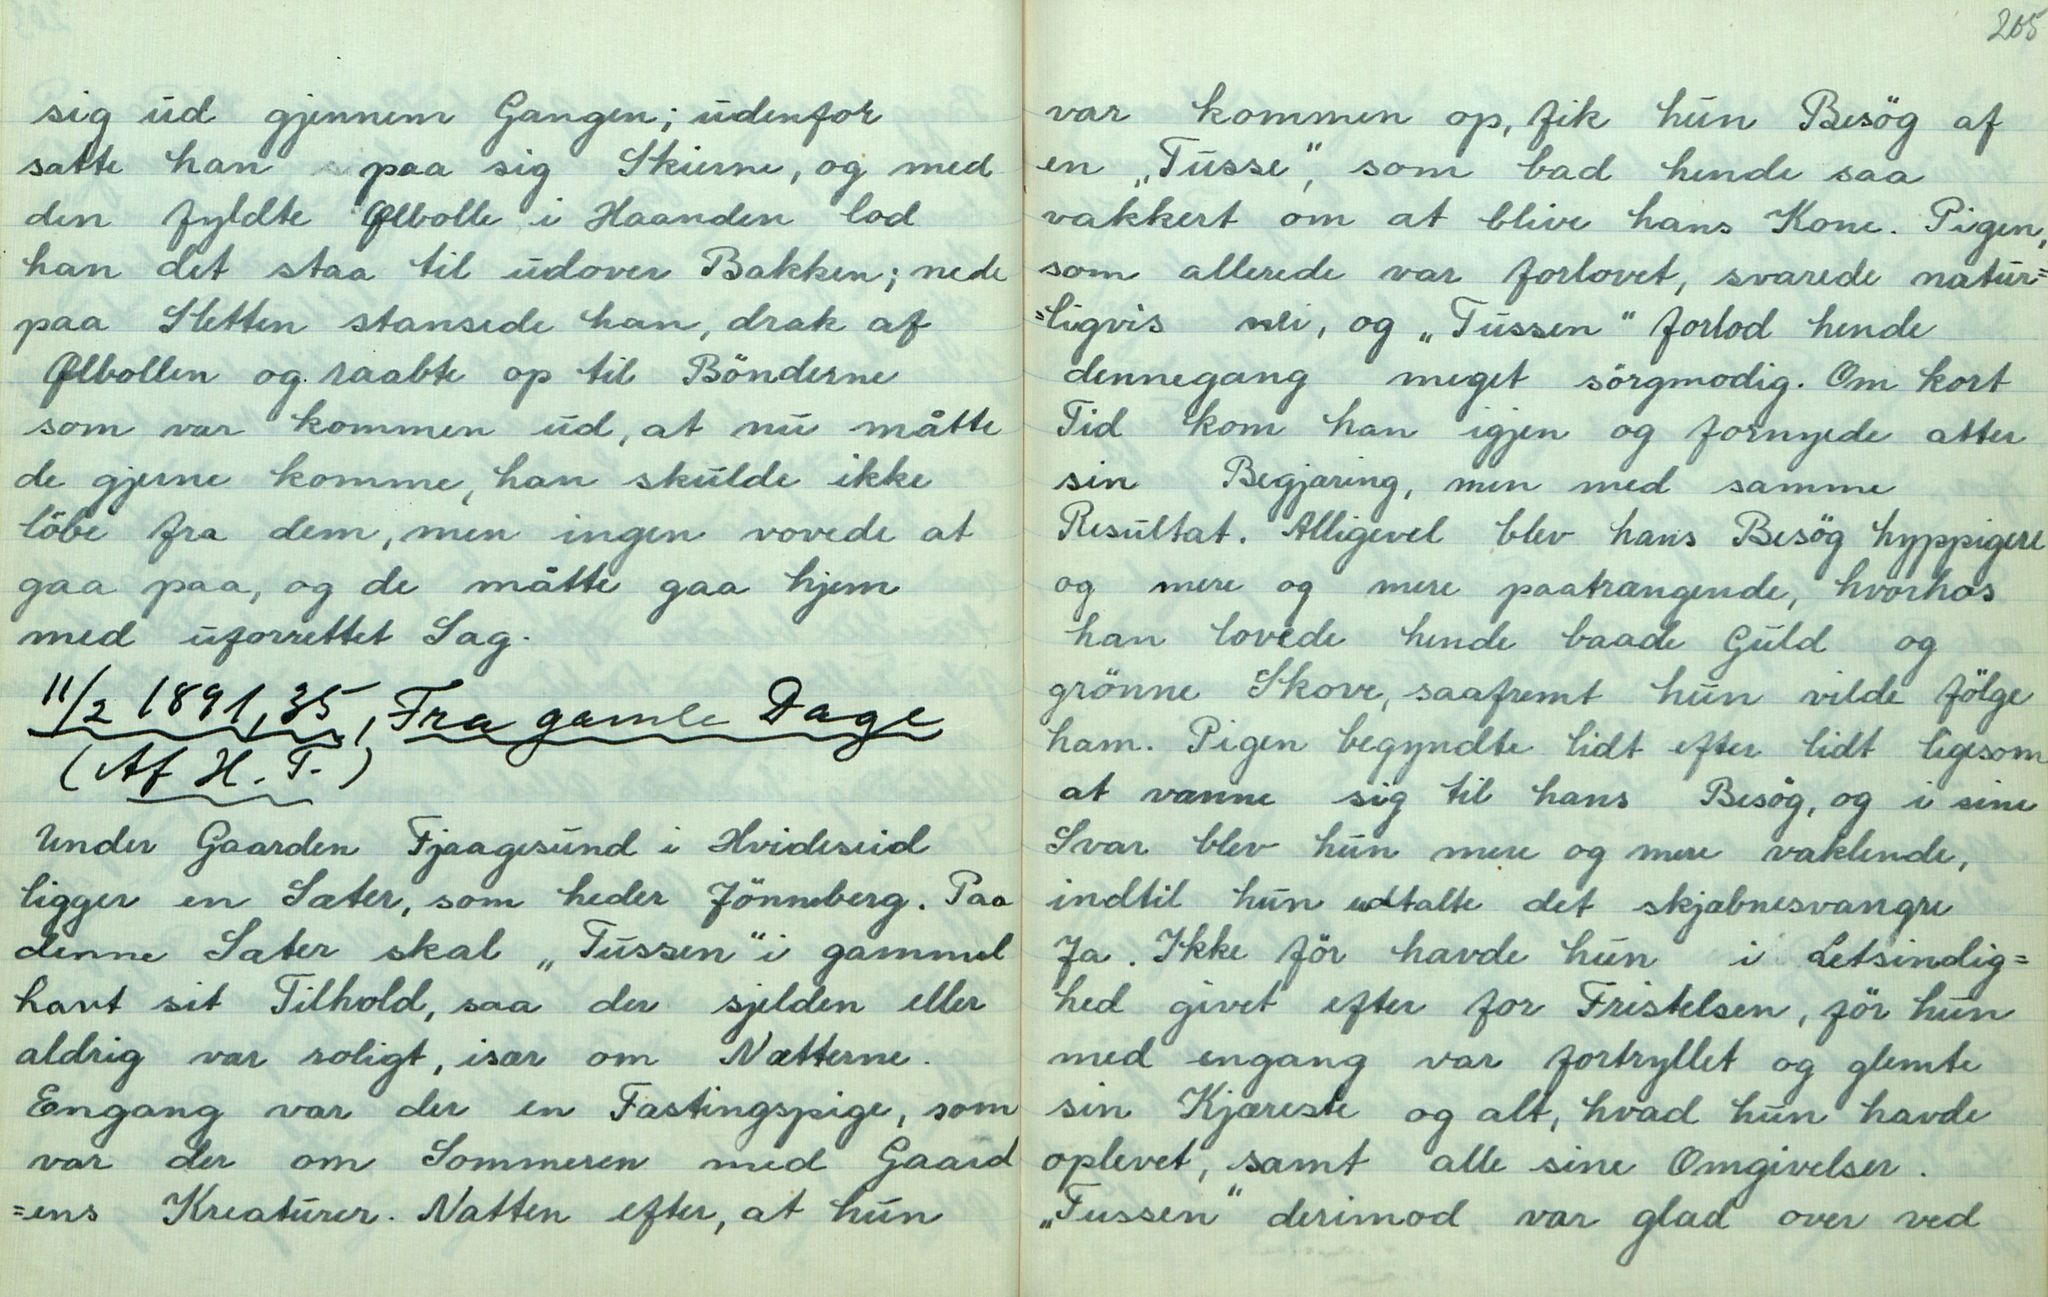 sig ud gjennem Gangen; udenfor
satte han paa sig Skierne, og med
den fyldte Ølbolle i Haanden lod
han det staa til udover Bakken; nede
paa Sletten stansede han, drak af
Ølbollen og raabte op til Bönderne
som var kommen ud, at nu måtte
de gjerne komme, han skulde ikke
löbe fra dem, men ingen vovede at
gaa paa, og de måtte gaa hjem
med uforrettet Sag.
11/2 1891, 35, Fra gamle Dage
(Af H. T.)
Under Gaarden Fjaagesund i Hvideseid
ligger en Sæter, som heder Jönneberg. Paa
denne Sæter skal „Tussen" i gammel
havt sit Tilhold, saa der sjelden eller
aldrig var roligt, især om Nætterne.
Engang var der en Fastingspige, som
var der om Sommeren med Gaard
=ens Kreaturer. Natten efter, at hun
265
var kommen op, fik hun Besög af
en „Tusse", som bad hende saa
vakkert om at blive hans Kone. Pigen,
som allerede var forlovet, svarede natur=
=ligvis nei, og „Tussen" forlod hende
dennegang meget sörgmodig. Om kort
Tid kom han igjen og fornyede atter
sin Begjæring, men med samme
Resultat. Alligevel blev hans Besög hyppigere
og mere og mere paatrængende, hvorhos
han lovede hende baade Guld og
grönne Skove, saafremt hun vilde fölge
ham. Pigen begyndte lidt efter lidt ligesom
at vænne sig til hans Besög, og i sine
Svar blev hun mere og mere vaklende,
indtil hun udtalte det skjæbnesvangre
Ja. Ikke för havde hun i Letsindig=
hed givet efter for Fristelsen, för hun
med engang var fortryllet og glemte
sin Kjæreste og alt, hvad hun havde
oplevet, samt alle sine Omgivelser.
„Tussen" derimod var glad over ved